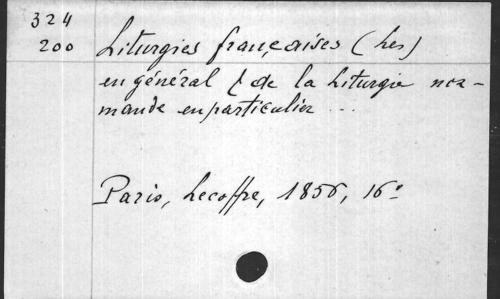 324
200 Liturgies françaises (Les)
en général & de la Liturgie nor-
mande en particulier ...
Paris, Lecoffre, 1856, 16º